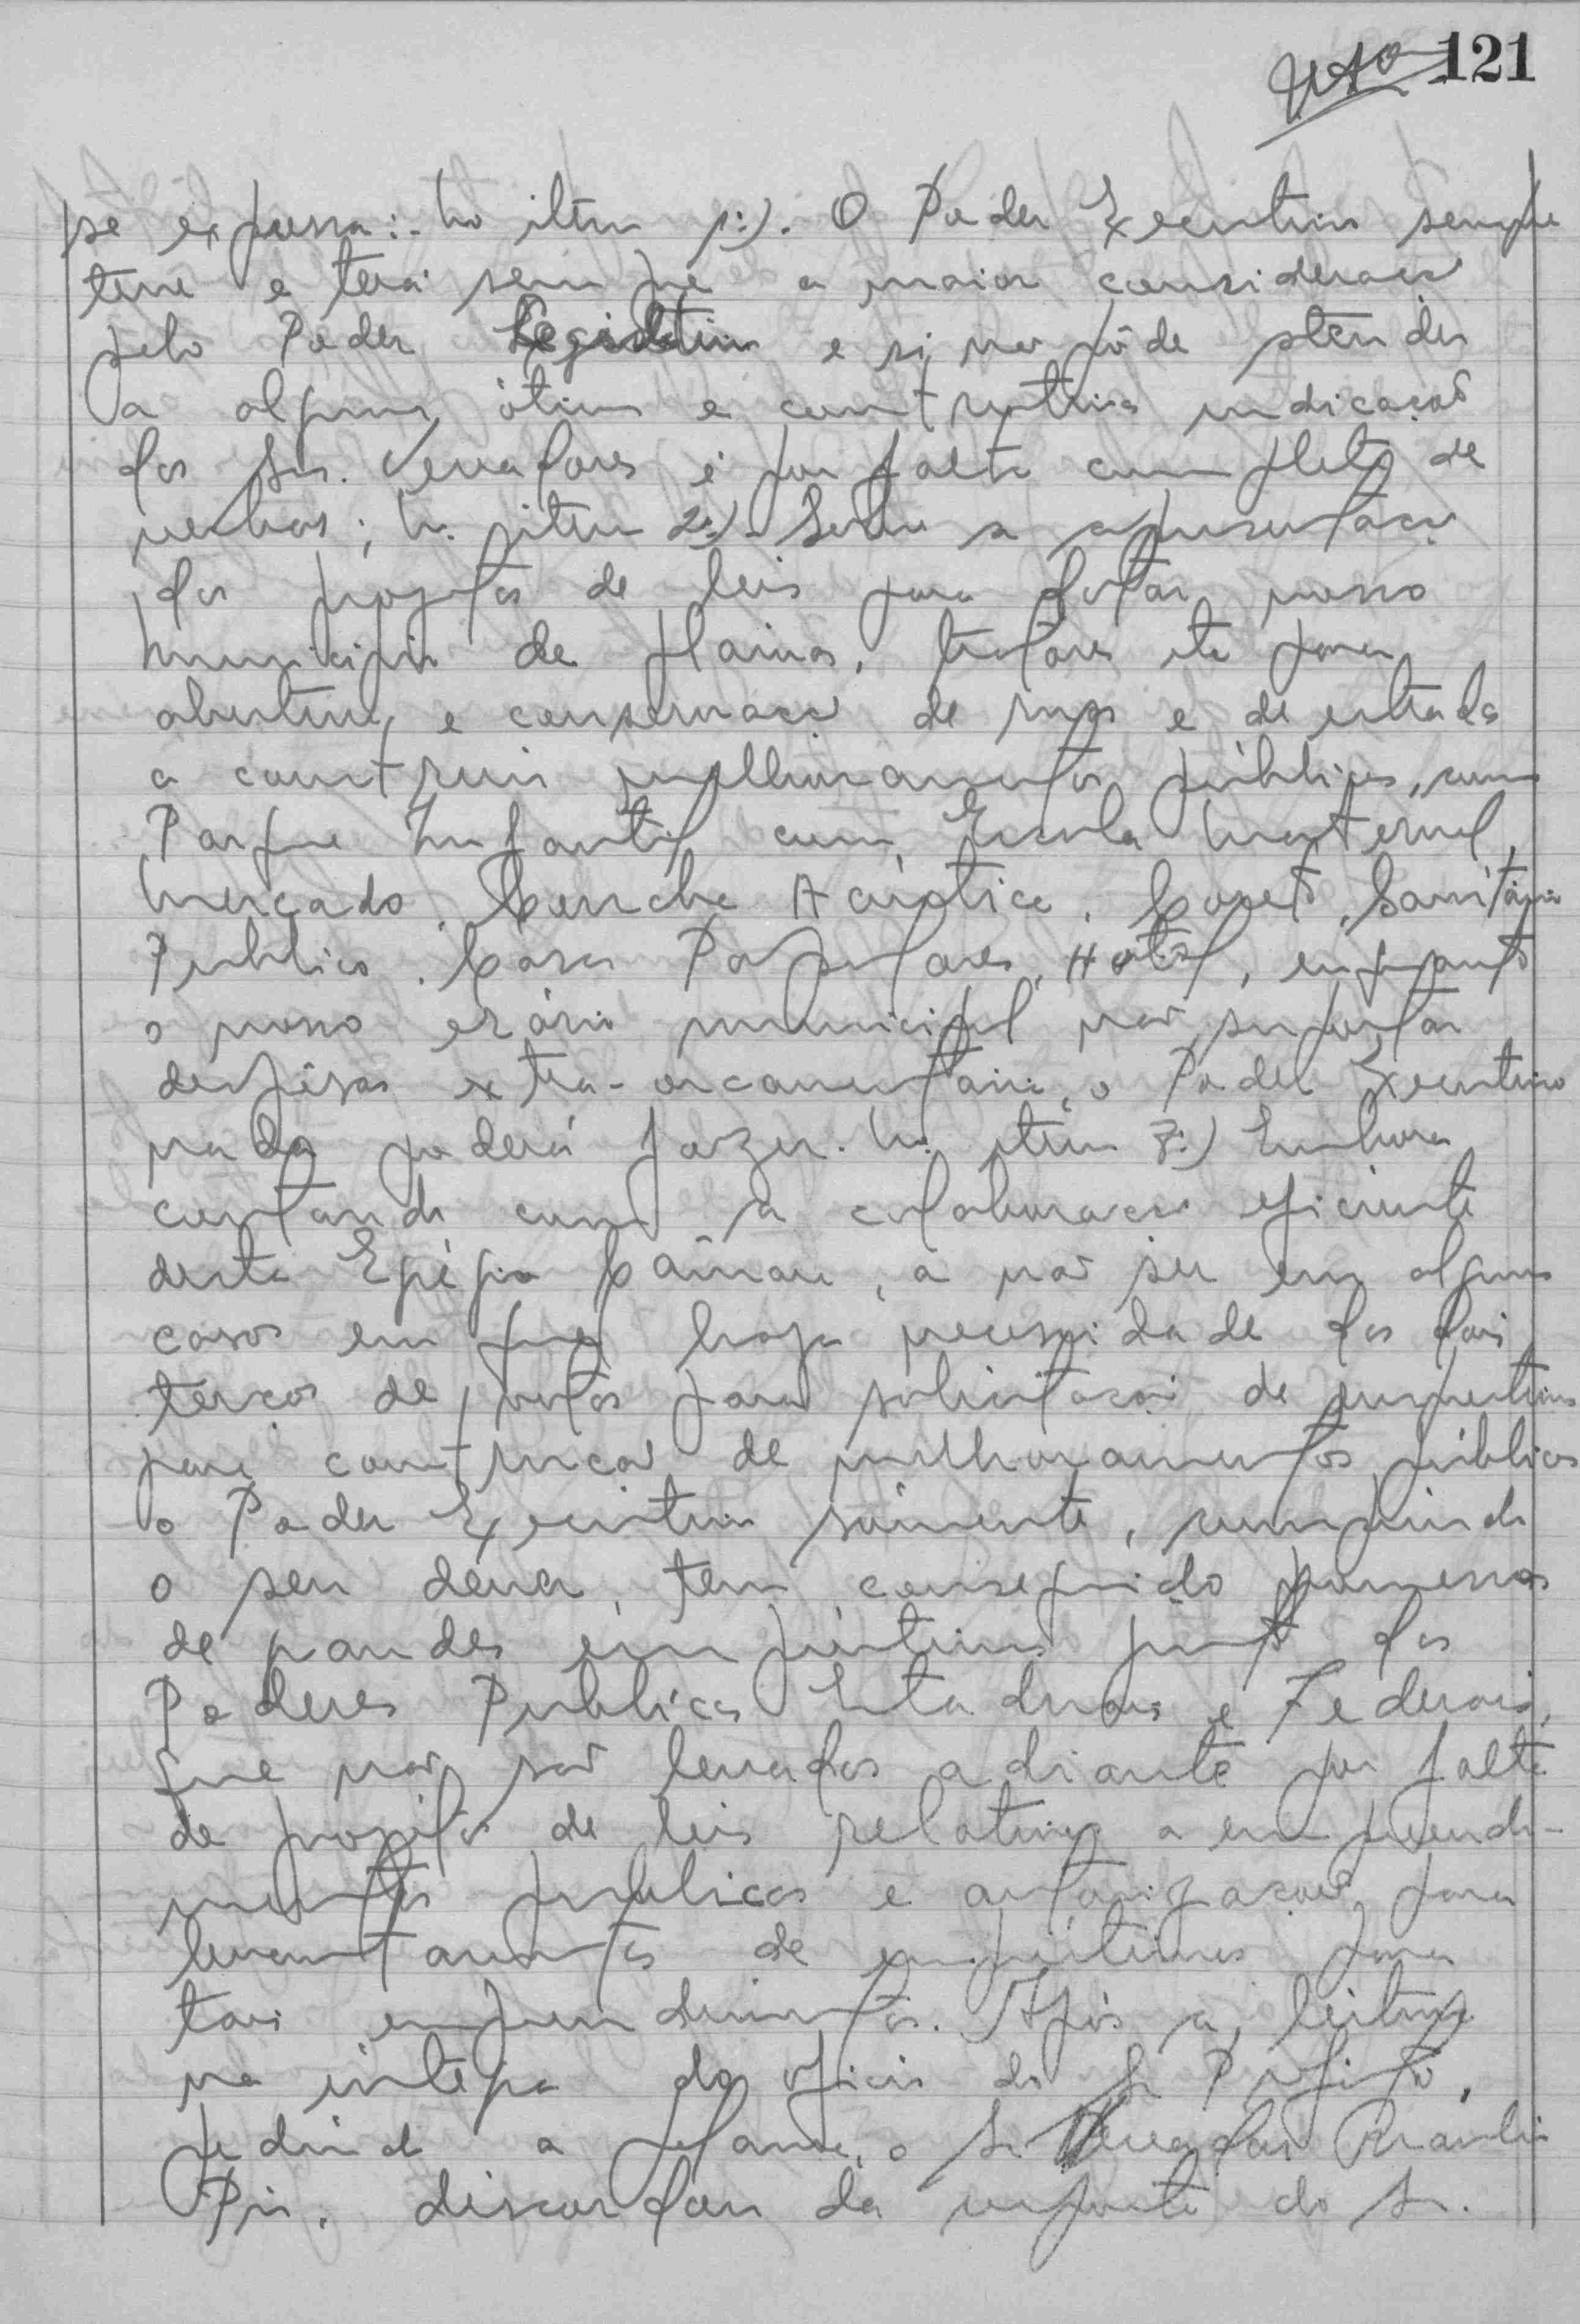 121
se expressa:- No item 1º). O Poder Executivo sempre
teve e terá sempre a maior consideração
pelo Poder Legislativo e si não pôde atender
a algumas ótimas e construtivas indicações
dos Srs. Vereadores é por falta completa de
verbas; No item 2º)- Sobre a apresentação
dos projetos de leis para dotar nosso
Municipio de plainas, tratores etc para
abertura e conservação de ruas e de estradas
a construir melhoramentos públicos, como
Parque Infantil com Escola Maternal,
Mercado, Concha Acústica, Coreto, Sanitário
Publico, Casas Populares, Hotel, enquanto
o nosso erário municipal não suportar
despêsas extra-orçamentaria, o Poder Executivo
nada poderá fazer. No item 3º) Embora
contando com a colaboração eficiente
desta Egrégia Câmara, a não ser em alguns
casos em que haja necessidade dos dois
terços de votos para solicitação de emprestimos
para construção de melhoramentos públicos
o Poder Executivo sómente, cumprindo
o seu dever, tem conseguido promessas
de grandes empréstimos junto dos
Poderes Publicos Estaduais e Federais,
que não são levados adiante por falta
de projetos de leis relativos a empreendi-
mentos publicos e autorizações para
levantamentos de empréstimos para
tais empreendimentos. Após a leitura
na integra do oficio do Sr Prefeito,
pedindo a palavra, o Sr Vereador Braulio
Pio, discordou da resposta do Sr.